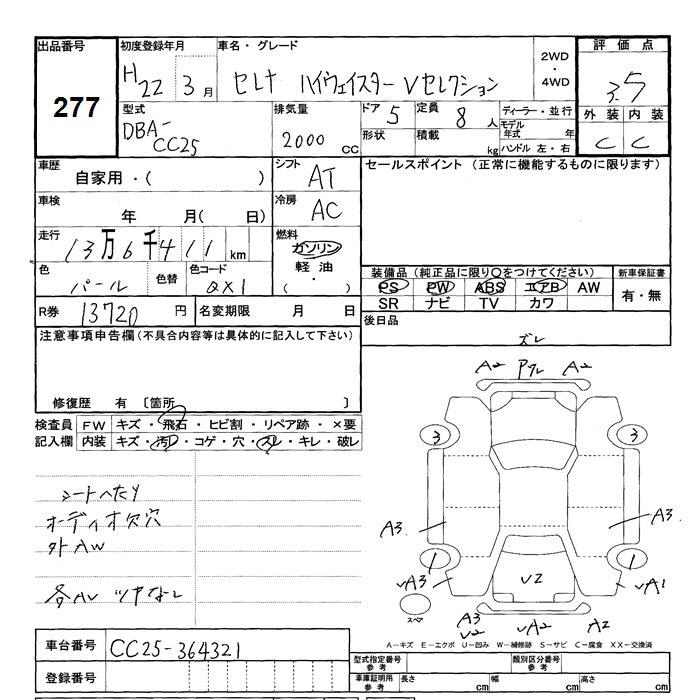 出品番号 初度登録年月 車名・グレード 2WD・4WD 評価点
277 H22 3月 セレナ ハイウェイスター Vセレクション 3.5
型式 排気量 ドア 5 定員 8人 ディーラー・並行 外装 内装
DBA-CC25 2000 CC 形状 積載 kg モデル年式 年 C C
ハンドル 左・右
車歴 シフト セールスポイント (正常に機能するものに限ります)
自家用・( ) AT
車検 冷房
年 月( 日) AC
走行 燃料
13万6千411 km ガソリン
色 色替 色コード 軽油 装備品 (純正品に限り○をつけてください) 新車保証書
パール QX1 ( ・ ) PS PW ABS エアB AW 有・無
R券 13720 円 名変期限 月 日 SR ナビ TV カワ
注意事項申告欄(不具合内容等は具体的に記入して下さい) 後日品
ズレ
A2 A2
修復歴 有 〔箇所 〕
検査員 FW キズ・飛石・ヒビ割・リペア跡・×要
記入欄 内装 キズ・汚レ・コゲ・穴・スレ・キレ・破レ
3 3
シートへたり
オーディオ欠穴
外AW
A3 A3
1 1
各AV ツヤなし
VA3 V2 VA1
スペア A3 V2 VA2 A2
車台番号 CC25-364321
A-キズ E-エクボ U-凹み W-補修跡 S-サビ C-腐食 XX-交換済
型式指定番号 参考 類別区分番号 参考
登録番号 車庫証明用 参考 長さ cm 幅 cm 高さ cm